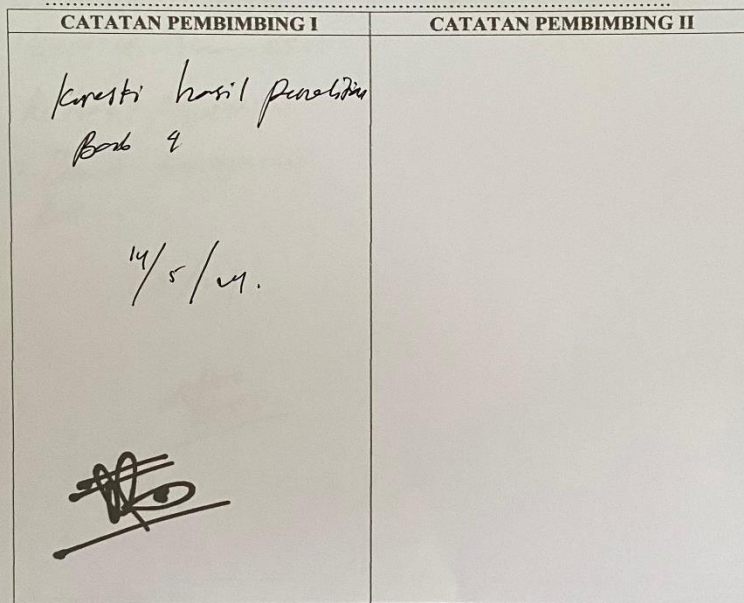 CATATAN PEMBIMBING I
CATATAN PEMBIMBING II
hasil penelitian
Bab 4
14/5/24.